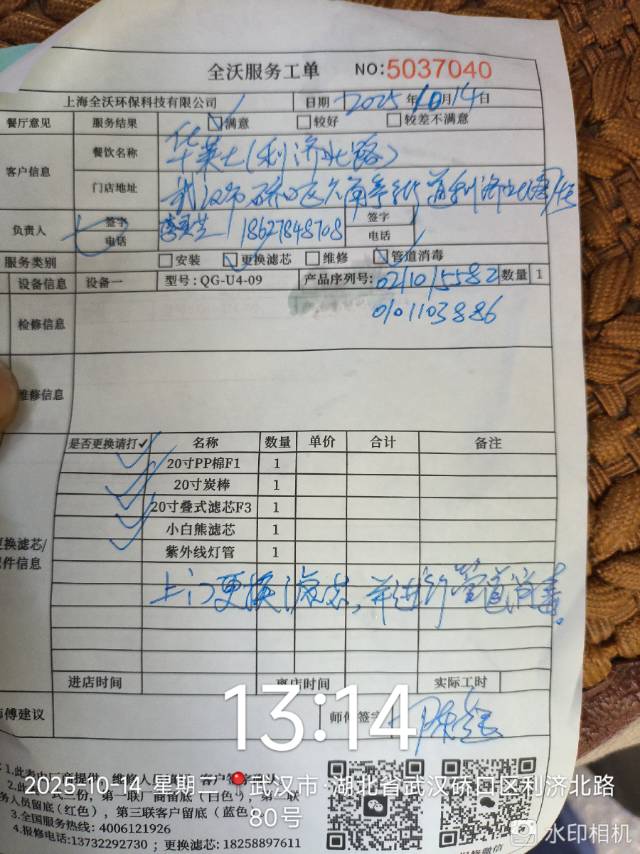 全沃服务工单 NO:5037040
上海全沃环保科技有限公司 日期 2025年10月14日
餐厅意见 服务结果 ☑满意 □较好 □较差不满意
客户信息 餐饮名称 华莱士(利济北路)
门店地址 武汉市硚口区六角亭街道利济北路
负责人 签字 签字
电话 18627848708 电话
服务类别 □安装 ☑更换滤芯 □维修 ☑管道消毒
设备信息 设备一 型号:QG-U4-09 产品序列号: 021015582 数量 1
0101103886
检修信息
维修信息
是否更换请打✓ 名称 数量 单价 合计 备注
✓ 20寸PP棉F1 1
✓ 20寸炭棒 1
✓ 20寸叠式滤芯F3 1
✓ 小白熊滤芯 1
紫外线灯管 1
更换滤芯/
配件信息
上门更换滤芯,并进行管道消毒。
进店时间 离店时间 实际工时
师傅建议 师傅签字
13:14
2025-10-14 星期二 武汉市·湖北省武汉硚口区利济北路
80号
务人员留底(红色),第三联客户留底(蓝色)
3.全国服务热线:4006121926
4.报修电话:13732292730;更换滤芯:18258897611
水印相机